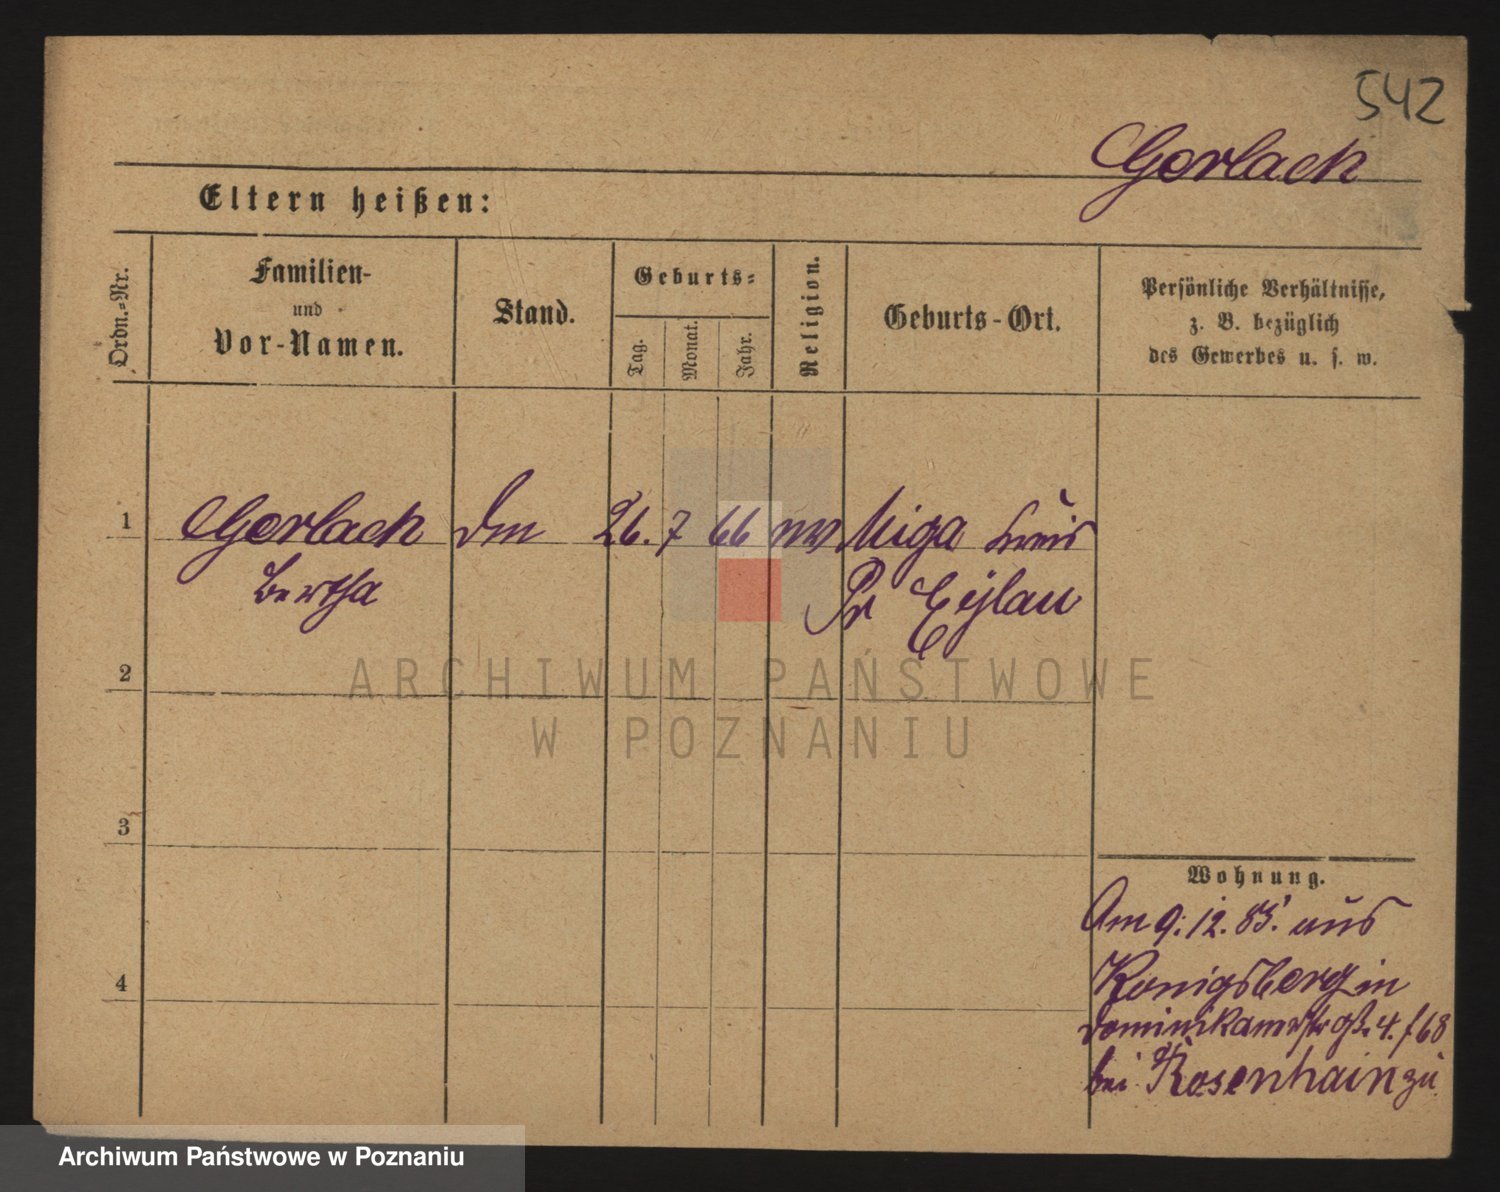 542
Gorlack
Eltern heißen:
Ordn.-Nr.
Familien-
und
Vor-Namen.
Stand.
Geburts-
Tag.
Monat.
Jahr.
Religion.
Geburts-Ort.
Persönliche Verhältnisse,
z. B. bezüglich
des Gewerbes u. s. w.
1 Gorlack 26. 7 66 Kreis
Bertha Pr Eylau
2
3
4
Wohnung.
Am 9. 12. 85. aus
Konigsberg in
4.
bei Rosenhain zu
ARCHIWUM PAŃSTWOWE
W POZNANIU
Archiwum Państwowe w Poznaniu